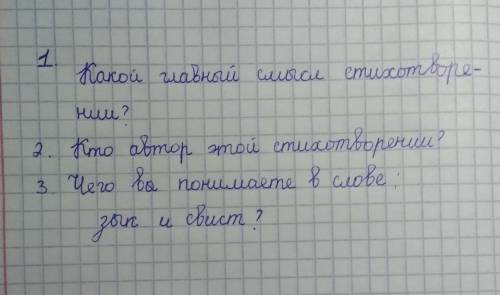 1.
Какой главный смысл стихотворе-
нии?
2. Кто автор этой стихотворении?
3. Чего вы понимаете в слове:
зык и свист?